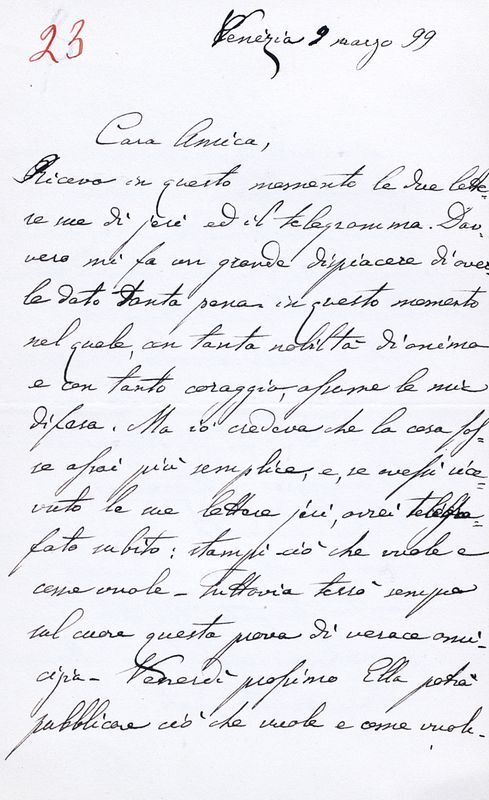 23
Venezia 9 marzo 99
Cara Amica,
Ricevo in questo momento le due lette-
re sue di jeri ed il telegramma. Dav-
vero mi fa un grande dispiacere d'aver-
le dato tanta pena in questo momento
nel quale, con tanta nobiltà d'animo
e con tanto coraggio, assume la mia
difesa. Ma io credeva che la cosa fos-
se assai più semplice, e, se avessi rice-
vuto le sue lettere jeri, avrei telegra-
fato subito: stampi ciò che vuole e
come vuole - Tuttavia terrò sempre
sul cuore questa prova di verace ami-
cizia - Venerdì prossimo Ella potrà
pubblicare ciò che vuole e come vuole.